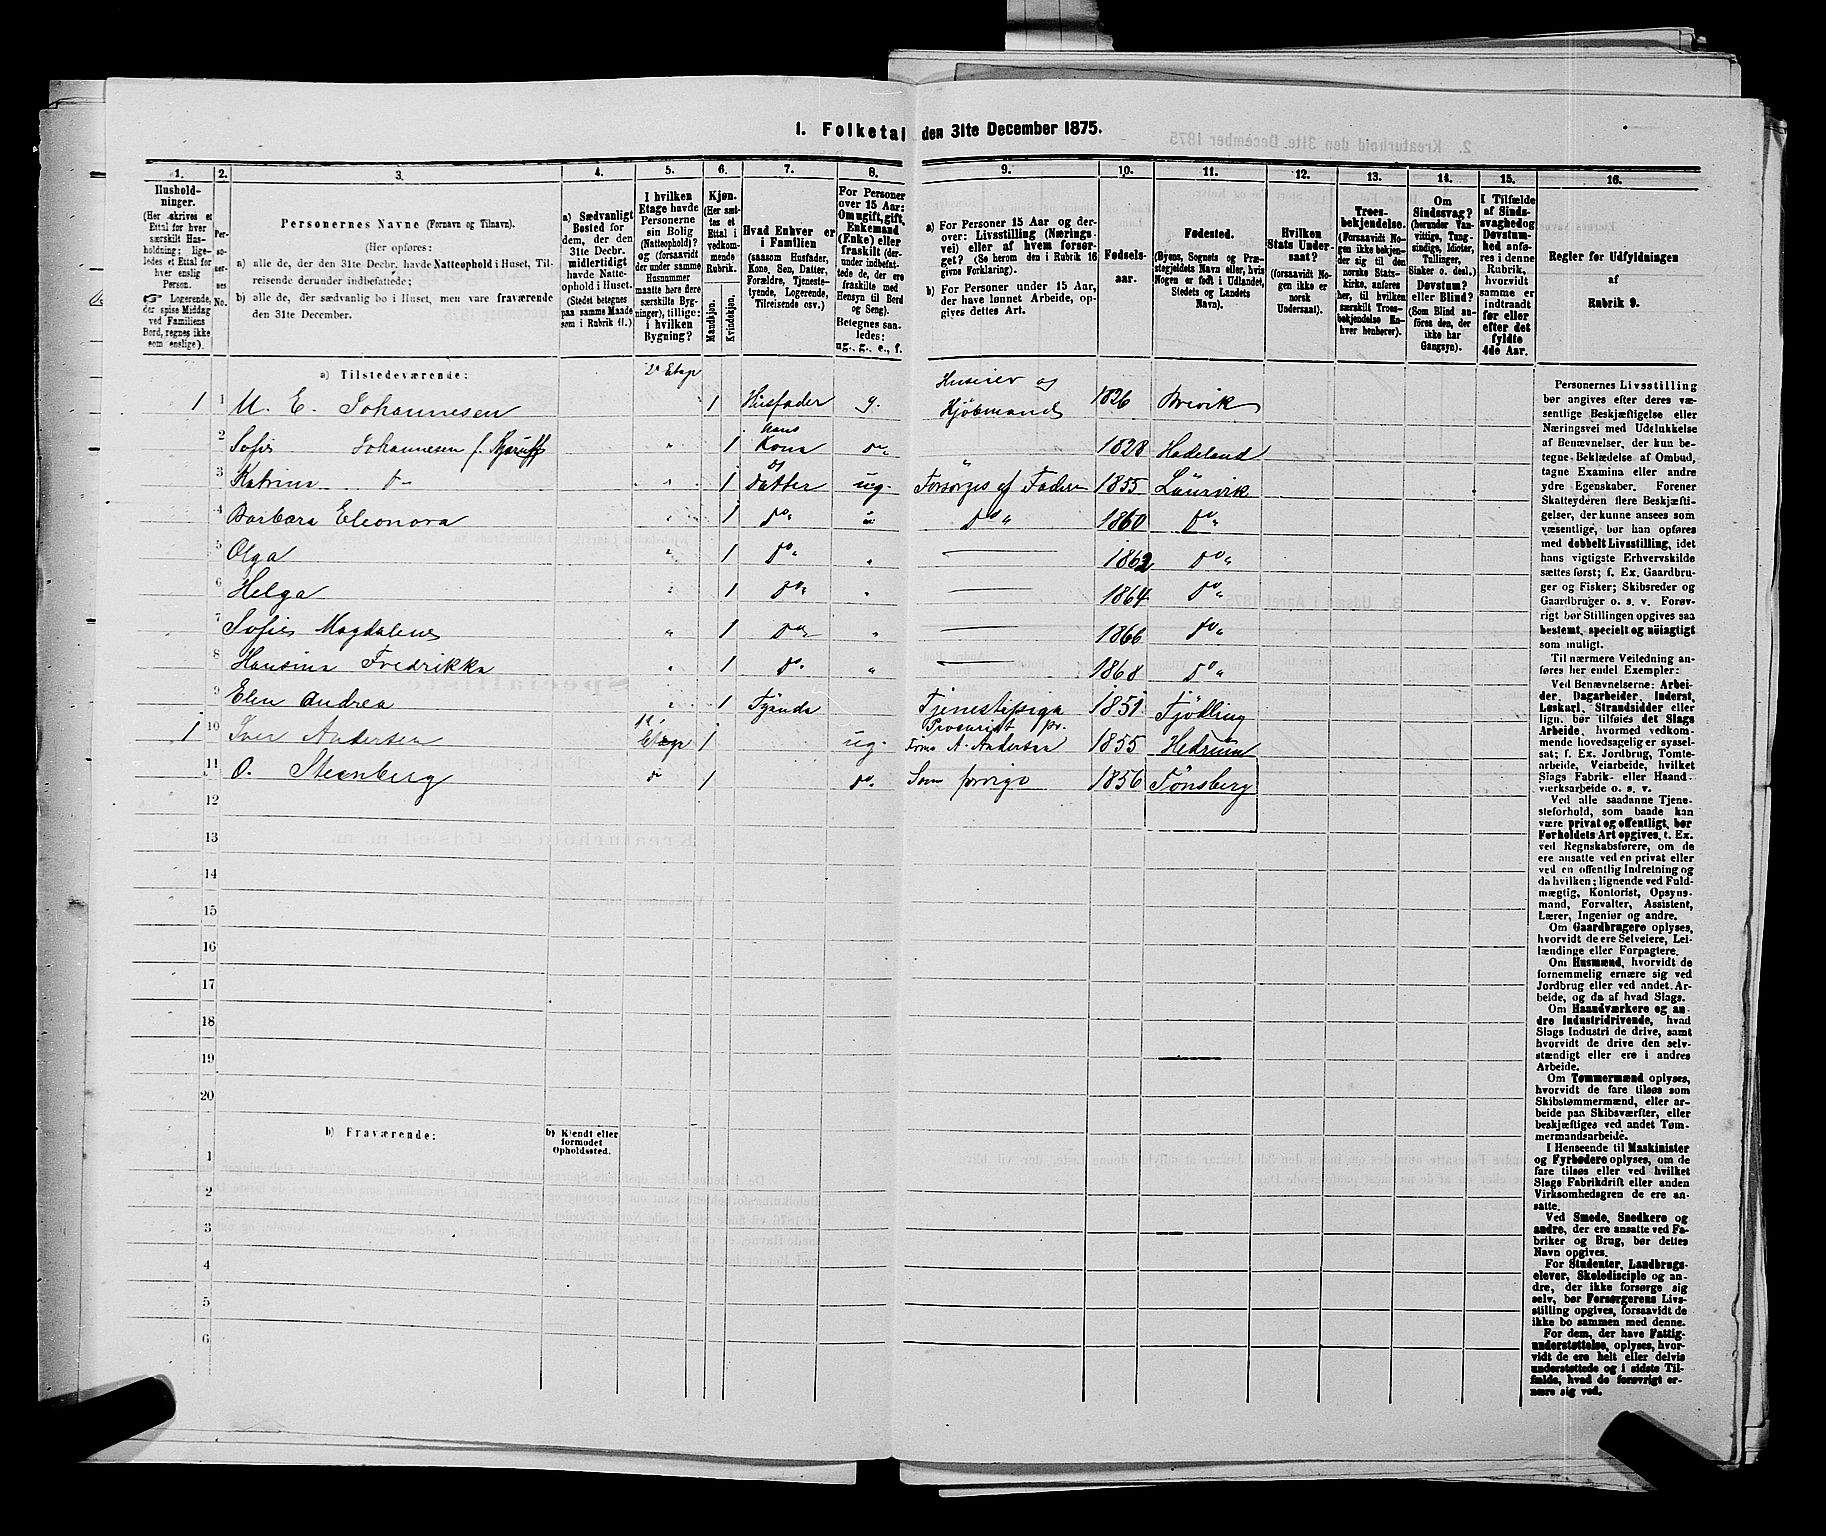 1. Folketal den 31te December 1875.
1.
2.
3.
4.
5.
6.
7.
8.
9.
10.
11.
12.
13.
14.
15.
16.
Hushold-
ninger.
(Her skrives et
Ettal for hver
særskilt Hus-
holdning; lige-
ledes et Ettal for
hver enslig
Person.
Logerende,
der spise Middag
ved Familiens
Bord, regnes ikke
som enslige).
Per-
so-
ner-
nes
No.
Personernes Navne (Fornavn og Tilnavn).
(Her opføres:
a) alle de, der den 31te Decbr. havde Natteophold i Huset, Til-
reisende derunder indbefattede;
b) alle de, der sædvanlig bo i Huset, men vare fraværende
den 31te December.
a) Sædvanligt
Bosted for
dem, der den
31te Decbr.
midlertidigt
havde Natte-
ophold i Huset.
(Stedet betegnes
paa samme Maade
som i Rubrik 11.)
I hvilken
Etage havde
Personerne
sin Bolig
(Natteophold)?
og (forsaavidt
der under samme
Husnummer
maatte høre flere
særskilte Byg-
ninger), tillige:
i hvilken
Bygning?
Kjøn.
(Her sæt-
tes et
Ettal i
vedkom-
mende
Rubrik.
Mandkjøn.
Kvindekjøn.
Hvad Enhver er
i Familien
(saasom Husfader,
Kone, Søn, Datter,
Forældre, Tjeneste-
tyende, Logerende,
Tilreisende osv.)
For Personer
over 15 Aar:
Om ugift, gift,
Enkemand
(Enke) eller
fraskilt (der-
under indbefat-
tede de, der ere
fraskilte med
Hensyn til Bord
og Seng).
Betegnes saa-
ledes:
ug., g., e., f.
a) For Personer 15 Aar og der-
over: Livsstilling (Nærings-
vei) eller af hvem forsør-
get? (Se herom den i Rubrik 16
givne Forklaring).
b) For Personer under 15 Aar,
der have lønnet Arbeide, op-
gives dettes Art.
Fødsels-
aar.
Fødested.
(Byens, Sognets og Præ-
stegjeldets Navn eller, hvis
Nogen er født i Udlandet,
Stedets og Landets
Navn).
Hvilken
Stats Under-
saat?
(forsaavidt No-
gen ikke er
norsk
Undersaat).
Troes-
bekjendelse.
(Forsaavidt No-
gen ikke bekjen-
der sig til den
norske Stats-
kirke, anføres
her, til hvilken
særskilt Troes-
bekjendelse En-
hver henhører).
Om
Sindssvag?
(herunder Van-
vittige, Tung-
sindige, Idioter,
Tullinger,
Sinker o. desl.)
Døvstum?
eller Blind?
(Som Blind an-
føres den, der
ikke har
Gangsyn).
I Tilfælde
af Sinds-
svaghed og
Døvstum-
hed anfø-
res i denne
Rubrik,
hvorvidt
samme er
indtraadt
før eller
efter det
fyldte
4de Aar.
Regler for Udfyldningen
af
Rubrik 9.
a) Tilstedeværende:
2' Etage
Huseier og
1 1 M. E. Johannesen 1 Husfader g. Kjøbmand 1826 Brevik
hans
2 Sofie Johannesen f. " 1 Kone do 1828 Hadeland
3 Katrine do " 1 Datter ug. Forsørges af Faderen 1855 Laurvik
4 Barbara Eleonora " 1 do " do " 1860 do "
5 Olga " 1 do " " 1862 do "
6 Helga " 1 do " " 1864 do "
7 Sofie Magdalene " 1 do " " 1866 do "
8 Hansine Fredrikka " 1 do " " 1868 do "
9 Elen Andrea " 1 Tyende Tjenestepige 1851 Tjødling
Procurist pr.
1 10 Iver Andersen Etage 1 ug. Firma A. Andersen 1855 Hedrum
11 O. Steenberg do 1 do. Som forrige 1856 Tönsberg
12
13
14
15
16
17
18
19
20
b) Fraværende:
b) Kjendt eller
formodet
Opholdssted.
1
2
3
4
5
6
Personernes Livsstilling
bør angives efter deres væ-
sentlige Beskjæftigelse eller
Næringsvei med Udelukkelse
af Benævnelser, der kun be-
tegne Beklædelse af Ombud,
tagne Examina eller andre
ydre Egenskaber. Forener
Skatteyderen flere Beskjæfti-
gelser, der kunne ansees som
væsentlige, bør han opføres
med dobbelt Livsstilling, idet
hans vigtigste Erhvervskilde
sættes først; f. Ex. Gaardbru-
ger og Fisker; Skibsreder og
Gaardbruger o. s. v. Forøv-
rigt bør Stillingen opgives saa
bestemt, specielt og nöiagtigt
som muligt.
Til nærmere Veiledning an-
føres her endel Exempler:
Ved Benævnelserne: Arbei-
der, Dagarbeider, Inderst,
Løskarl, Strandsidder eller
lign. bør tilføies det Slags
Arbeide, hvormed vedkom-
mende hovedsagelig er syssel-
sat; f. Ex. Jordbrug, Tomte-
arbeide, Veiarbeide, hvilket
Slags Fabrik- eller Haand-
værksarbeide o. s. v.
Ved alle saadanne Tjene-
steforhold, som baade kan
være privat og offentligt, bør
Forholdets Art opgives, t. Ex.
ved Regnskabsførere, om de
ere ansatte ved en privat eller
ved en offentlig Indretning og
da hvilken; lignende ved Fuld-
mægtig, Kontorist, Opsyns-
mand, Forvalter, Assistent,
Lærer, Ingeniør og andre.
Om Gaardbrugere oplyses,
hvorvidt de ere Selveiere, Lei-
lændinge eller Forpagtere.
Om Husmænd, hvorvidt de
fornemmelig ernære sig ved
Jordbrug eller ved andet Ar-
beide, og da af hvad Slags.
Om Haandværkere og an-
dre Industridrivende, hvad
Slags Industri de drive, samt
hvorvidt de drive den selv-
stændigt eller ere i andres
Arbeide.
Om Tømmermænd oplyses,
hvorvidt de fare tilsøs som
Skibstømmermænd, eller ar-
beide paa Skibsværfter, eller
beskjæftiges ved andet Tøm-
mermandsarbeide.
I Henseende til Maskinister
og Fyrbødere oplyses, om de
fare tilsøs eller ved hvilket
Slags Fabrikdrift eller anden
Virksomhedsgren de ere an-
satte.
Ved Smede, Snedkere og
andre, der ere ansatte ved Fa-
briker og Brug, bør dettes
Navn opgives.
For Studenter, Landbrugs-
elever, Skoledisciple og an-
dre, der ikke forsørge sig
selv, bør Forsørgerens Livs-
stilling opgives, forsaavidt de
ikke bo sammen med denne.
For dem, der have Fattig-
understøttelse, oplyses, hvor-
vidt de ere helt eller delvis
understøttede og i sidste Til-
fælde, hvad de forøvrigt er-
nære sig ved.